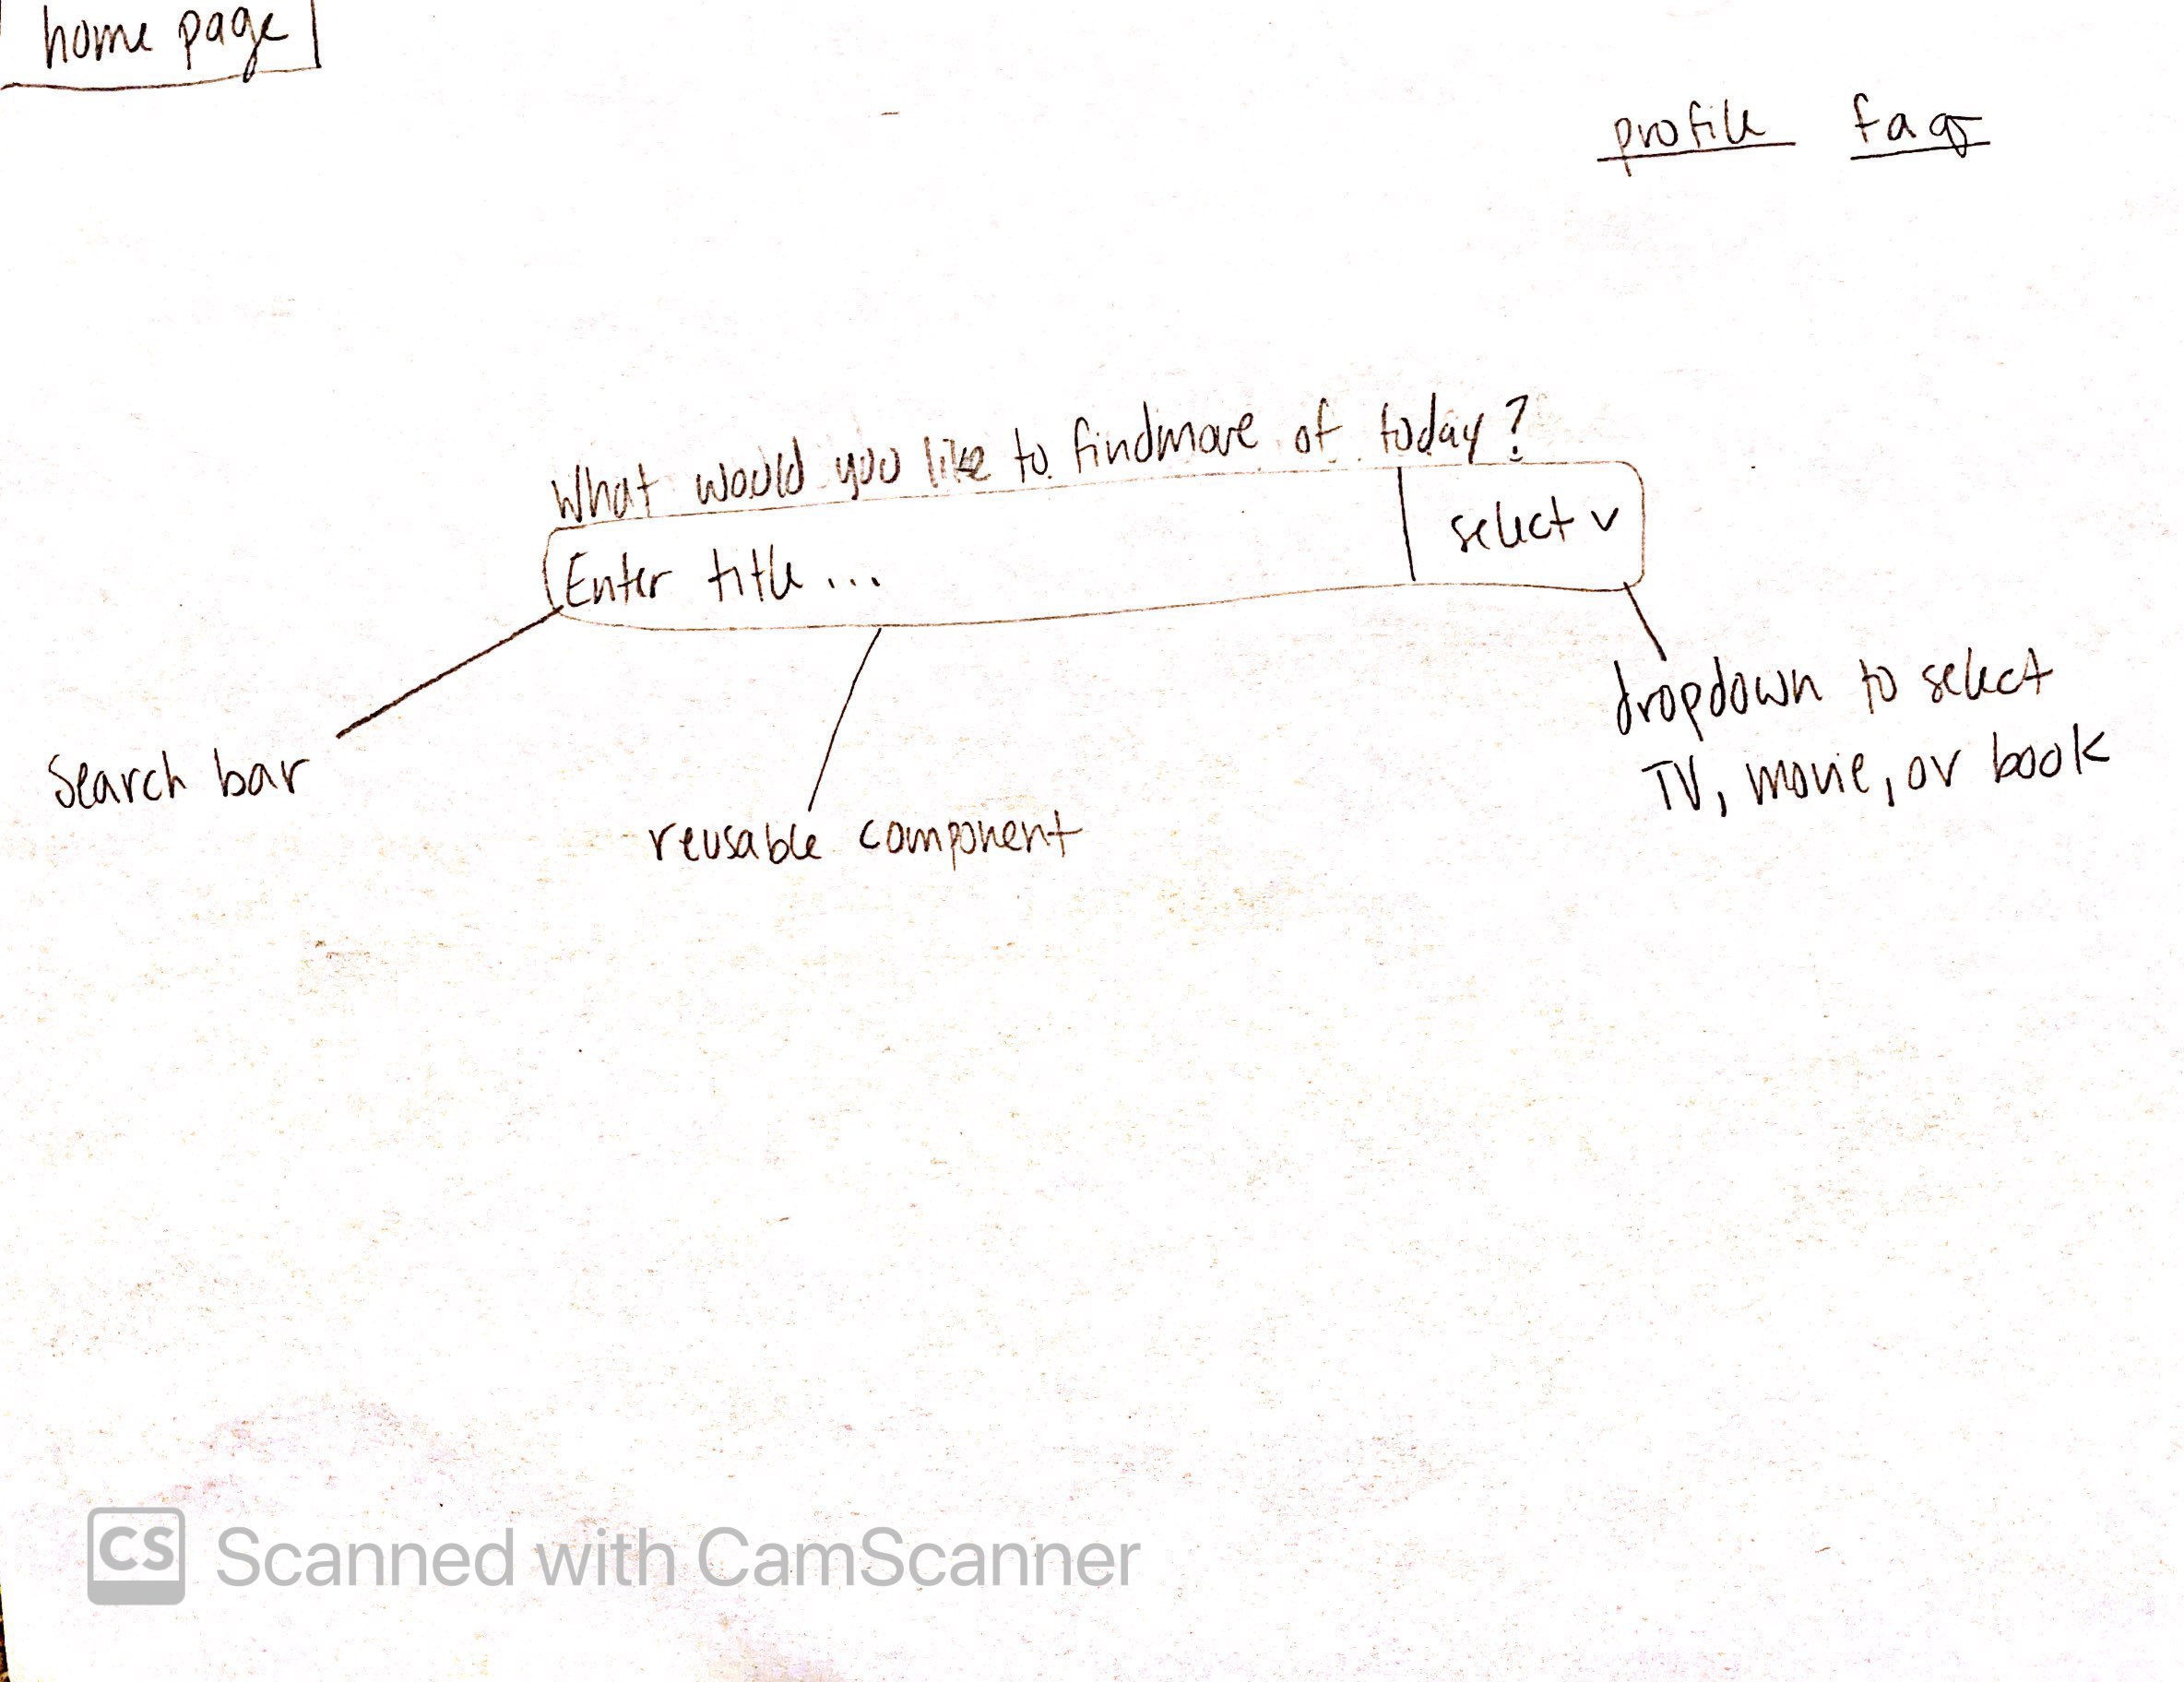 home page
profile faq
What would you like to findmore of today?
Enter title... select v
Search bar
reusable component
dropdown to select
TV, movie, or book
CS Scanned with CamScanner